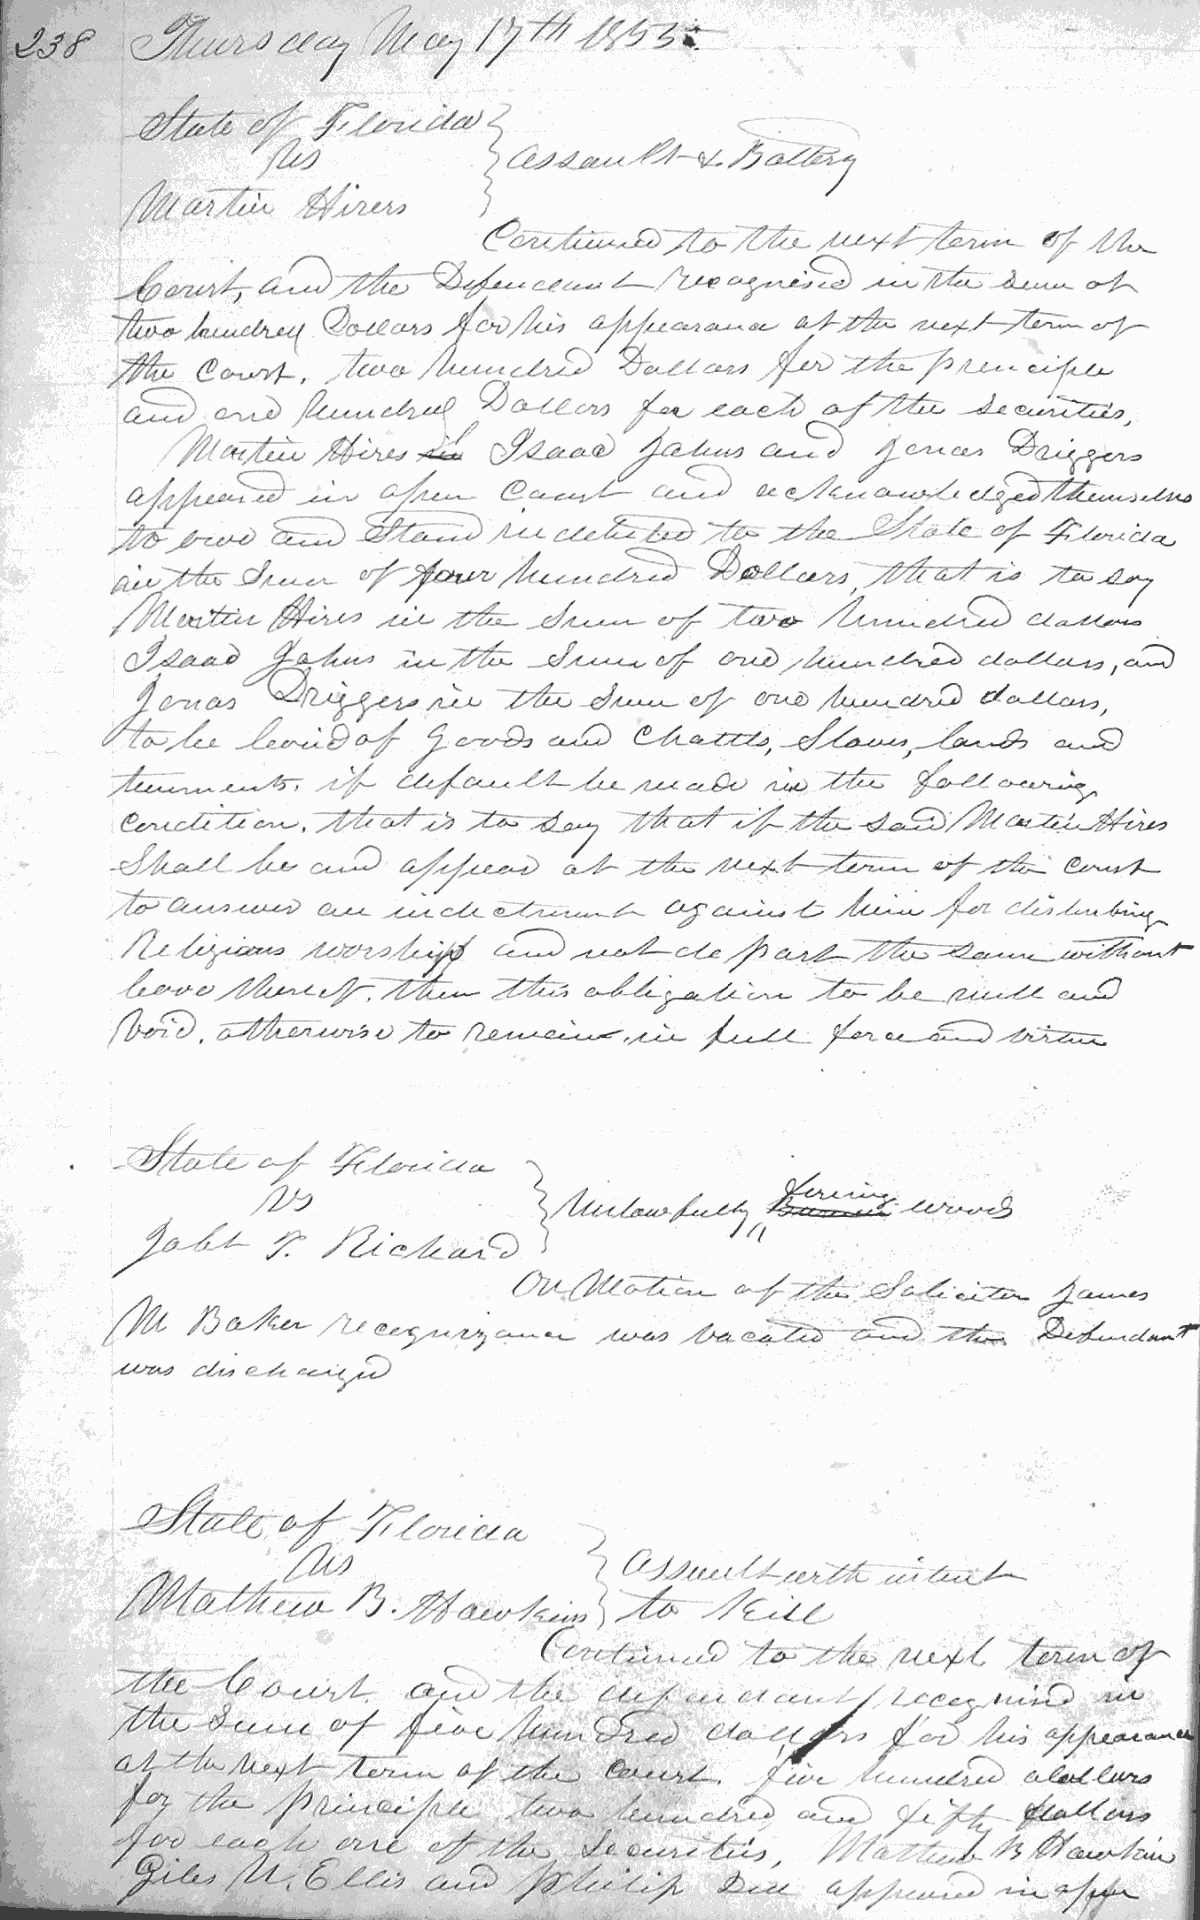 238 Thursday May 17th 1855
State of Florida
vs
Martin Hirers
Assault & Battery
Continued to the next term of the
Court, and the Defendant recognised in the sum of
two hundred Dollars for his appearance at the next term of
the Court. two hundred Dollars for the principle
and one hundred Dollars for each of the securities,
Martin Hires Isaac Johns and Jonas Driggers
appeared in open Court and acknowledged themselves
to owe and Stand indebted to the State of Florida
in the Sum of four hundred Dollars, that is to say
Martin Hires in the Sum of two hundred dollars
Isaac Johns in the Sum of one hundred dollars, and
Jonas Driggers in the Sum of one hundred dollars,
to be levied of goods and Chattls, Slaves, lands and
tenments. if default be made in the following
condition. that is to say that if the said Martin Hires
Shall be and appear at the next term of the Court
to answer an indectment against him for disturbing
Religious worship and not depart the same without
leave thereof. then this obligation to be null and
Void. otherwise to remain in full force and virtue
State of Florida
vs
F. Richard
Unlawfully firing woods
On Motion of the Solicitor James
M Baker recognizance was vacated and the Defendant
was discharged
State of Florida
vs
Mathew B. Hawkins
Assault with intent
to kill
Continued to the next term of
the Court and the defendant recognised in
the Sum of five hundred dollars for his appearance
at the next term of the Court. five hundred dollars
for the principle two hundred and fifty dollars
for each one of the Securities, Mathew B Hawkins
Giles U. Ellis and Philip Dell appeared in open